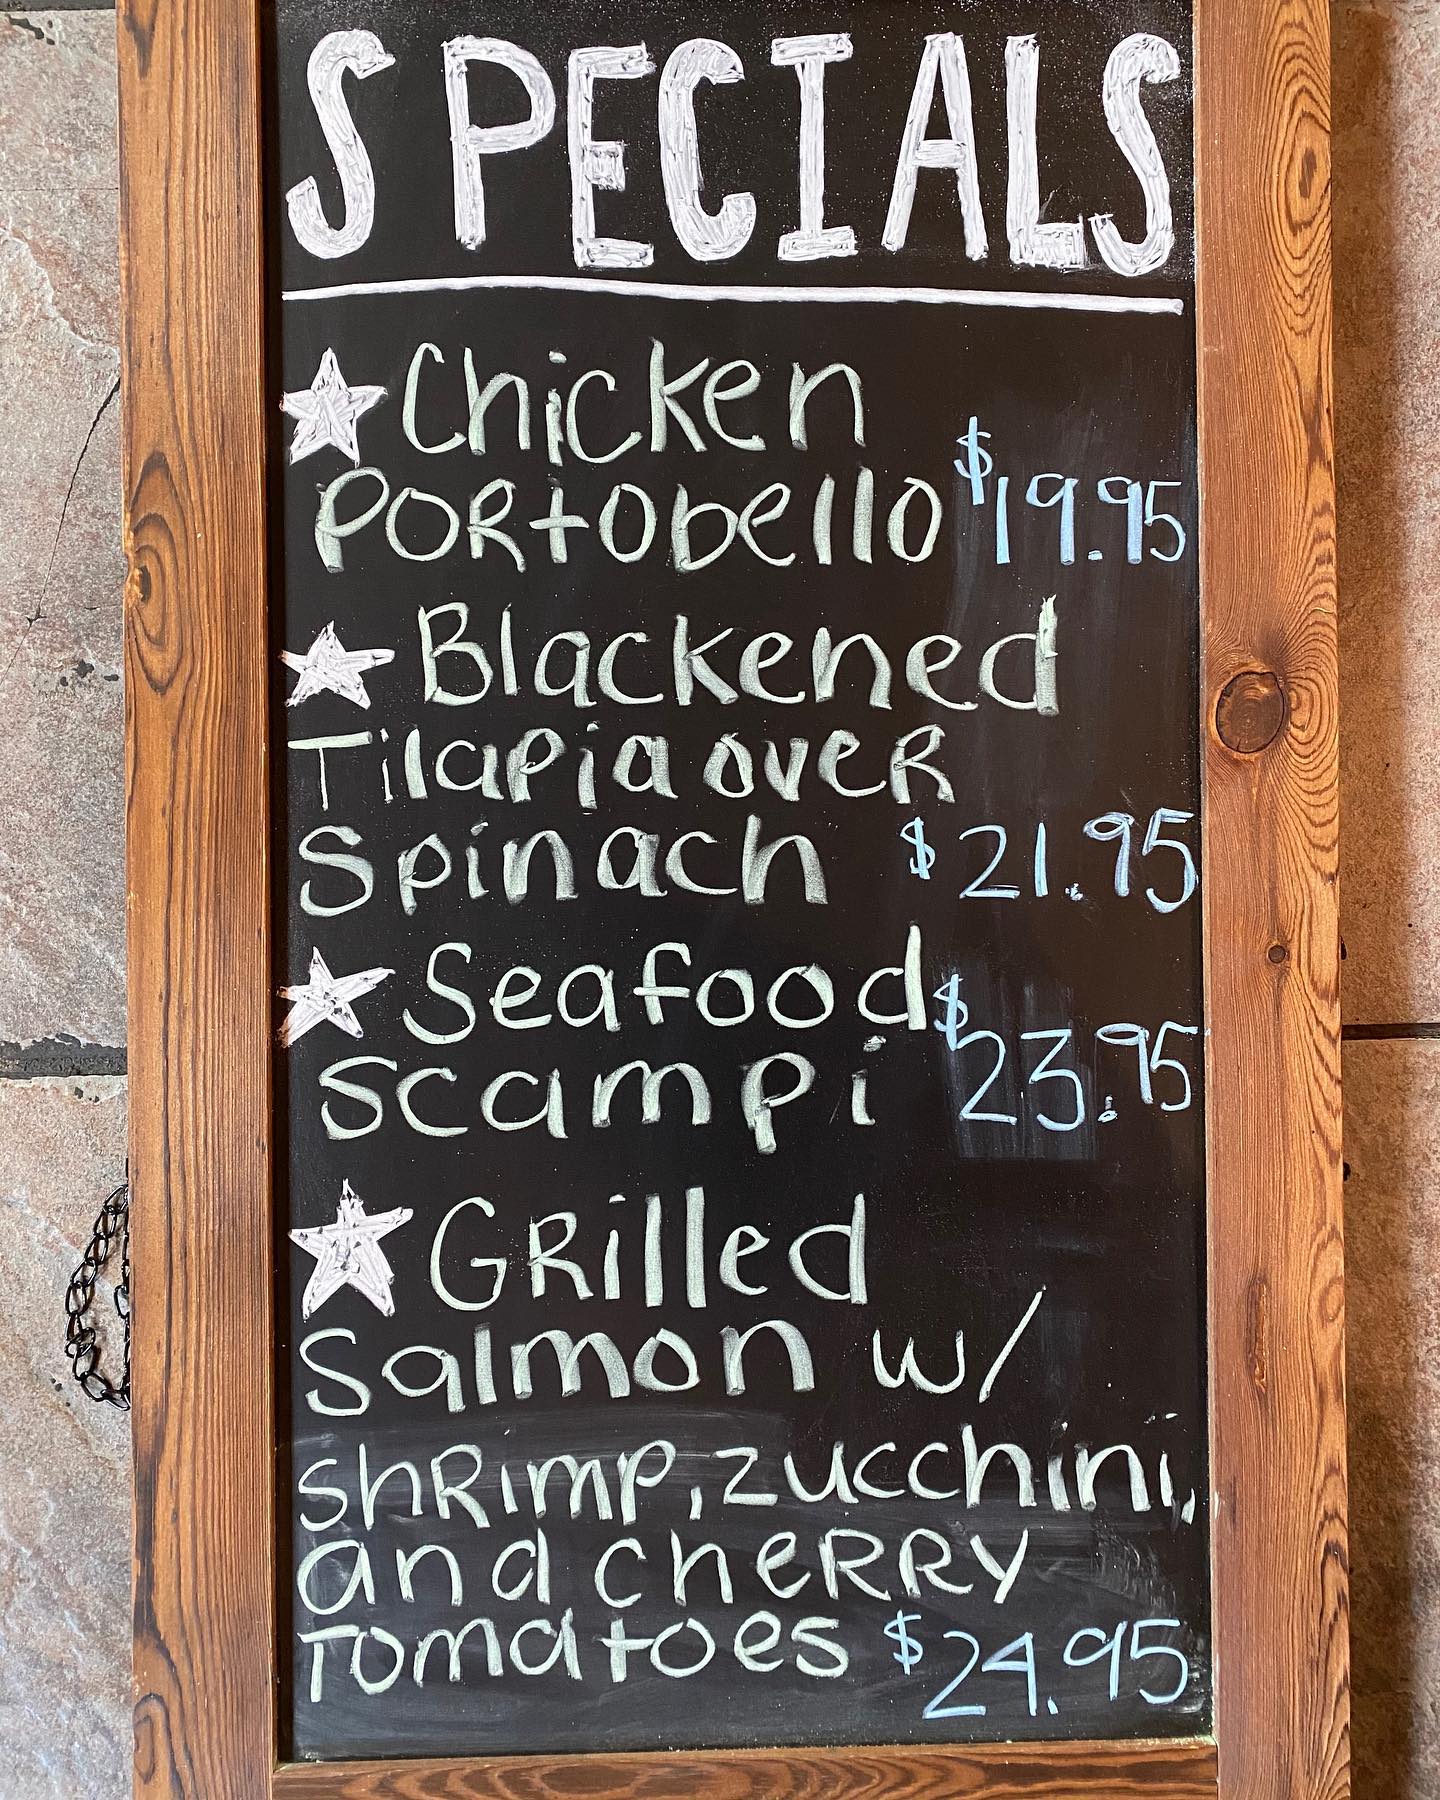 SPECIALS
Chicken
Portobello $19.95
Blackened
Tilapia over
Spinach $21.95
Seafood
Scampi $23.95
Grilled
Salmon w/
shrimp, zucchini,
and cherry
Tomatoes $24.95